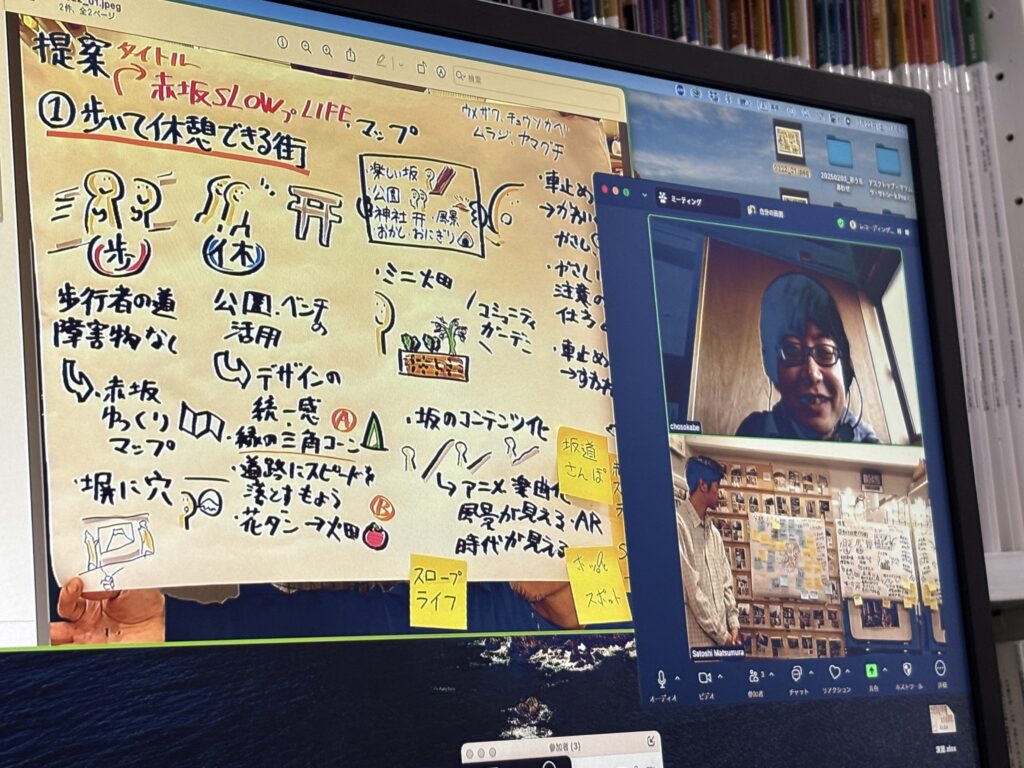 _01.jpeg
2件、全2ページ
検索
提案
タイトル
赤坂SLOWプLIFE、マップ
ウメザワ、チョウソカベ
ムラジ、ヤマグチ
①歩いて休憩できる街
歩
休
・楽しい坂
・公園
・神社 ・風景
・おかし・おにぎり
歩行者の道
障害物なし
・赤坂
ゆっくり
マップ
・塀に穴
公園、ベンチの
活用
デザインの
統一感 Ⓐ
・緑の三角コーン
・道路にスピードを
落とすもよう
・花ダン→畑
Ⓑ
・ミニ畑
コミュニティ
ガーデン
・坂のコンテンツ化
アニメ・楽曲化
風景が見える・AR
時代が見える
・車止め
→かわい
やさし
・やさしい
注意の
・車止め
坂道
さんぽ
スロープ
ライフ
スポット
ミーティング
自分の画面
レコーディング...
chosokabe
Satoshi Matsumura
オーディオ
ビデオ
参加者
3
チャット
リアクション
共有
ホストツール
詳細
参加者 (3)